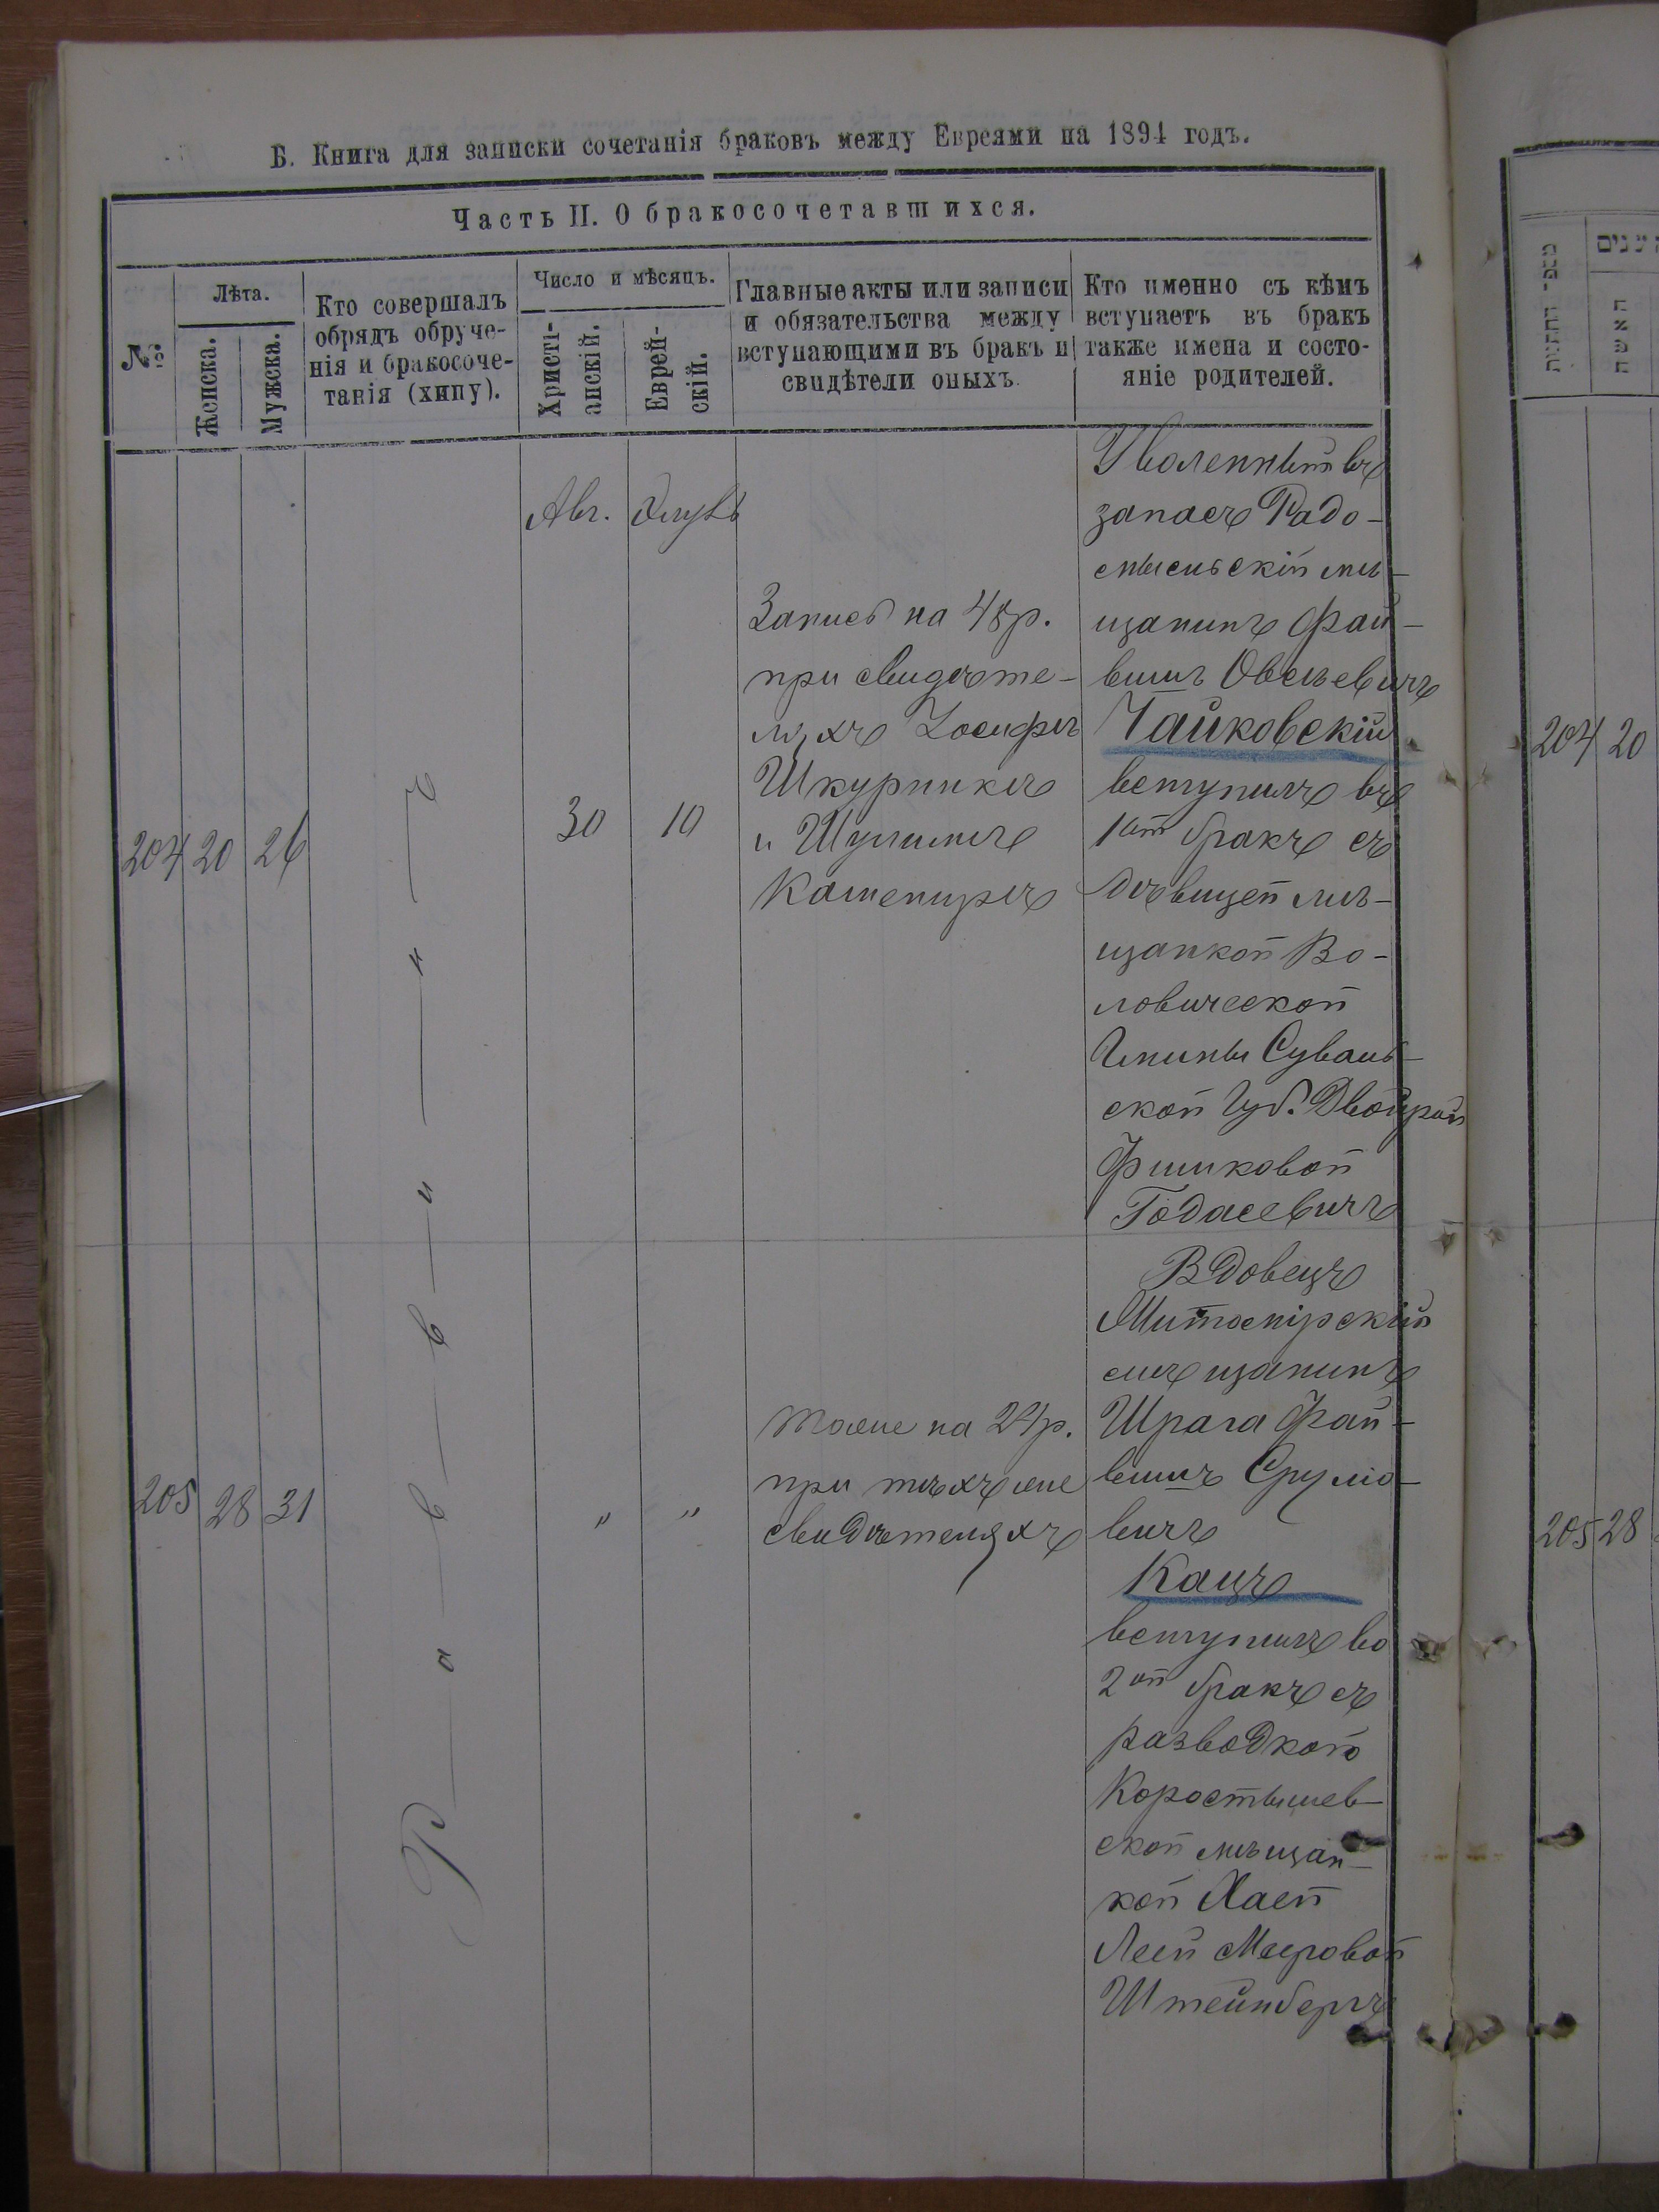 Б. Книга для записки сочетанія браковъ между Евреями на 1894 годъ.
Часть II. О бракосочетавшихся.
№
Лѣта.
Женска.
Мужска.
Кто совершалъ
обрядъ обруче-
нія и бракосоче-
танія (хипу).
Число и мѣсяцъ.
Христі-
анскій.
Еврей-
скій.
Главные акты или записи
и обязательства между
вступающими въ бракъ и
свидѣтели оныхъ.
Кто именно съ кѣмъ
вступаетъ въ бракъ
также имена и состо-
яніе родителей.
204
20
26
Р а в в и н ъ
Авг.
30
Элулъ
10
Запись на 48 р.
при свидѣте-
ляхъ Іосифѣ
Шкурникѣ
и Шулимѣ
Каменирѣ
Уволенный въ
запасъ Радо-
мысльскій мѣ-
щанинъ Фай-
вишъ Овсѣевичъ
Чайковскій
вступилъ въ
1ый бракъ съ
дѣвицей мѣ-
щанкой Во-
ловической
Гмины Суваль-
ской Губ. Двойрой
Фишковой
Годасевичъ
205
28
31
"
"
Тоже на 24 р.
при тѣхъ же
свидѣтеляхъ
Вдовецъ
Житомірскій
мѣщанинъ
Шрага Фай-
вишъ Сруліо-
вичъ
Кацъ
вступилъ во
2ой бракъ съ
разводкою
Коростышев-
ской мѣщан-
кой Хаей
Леей Мееровой
Штейнбергъ
מספר החתנות
השנים
האשה
204
20
205
28